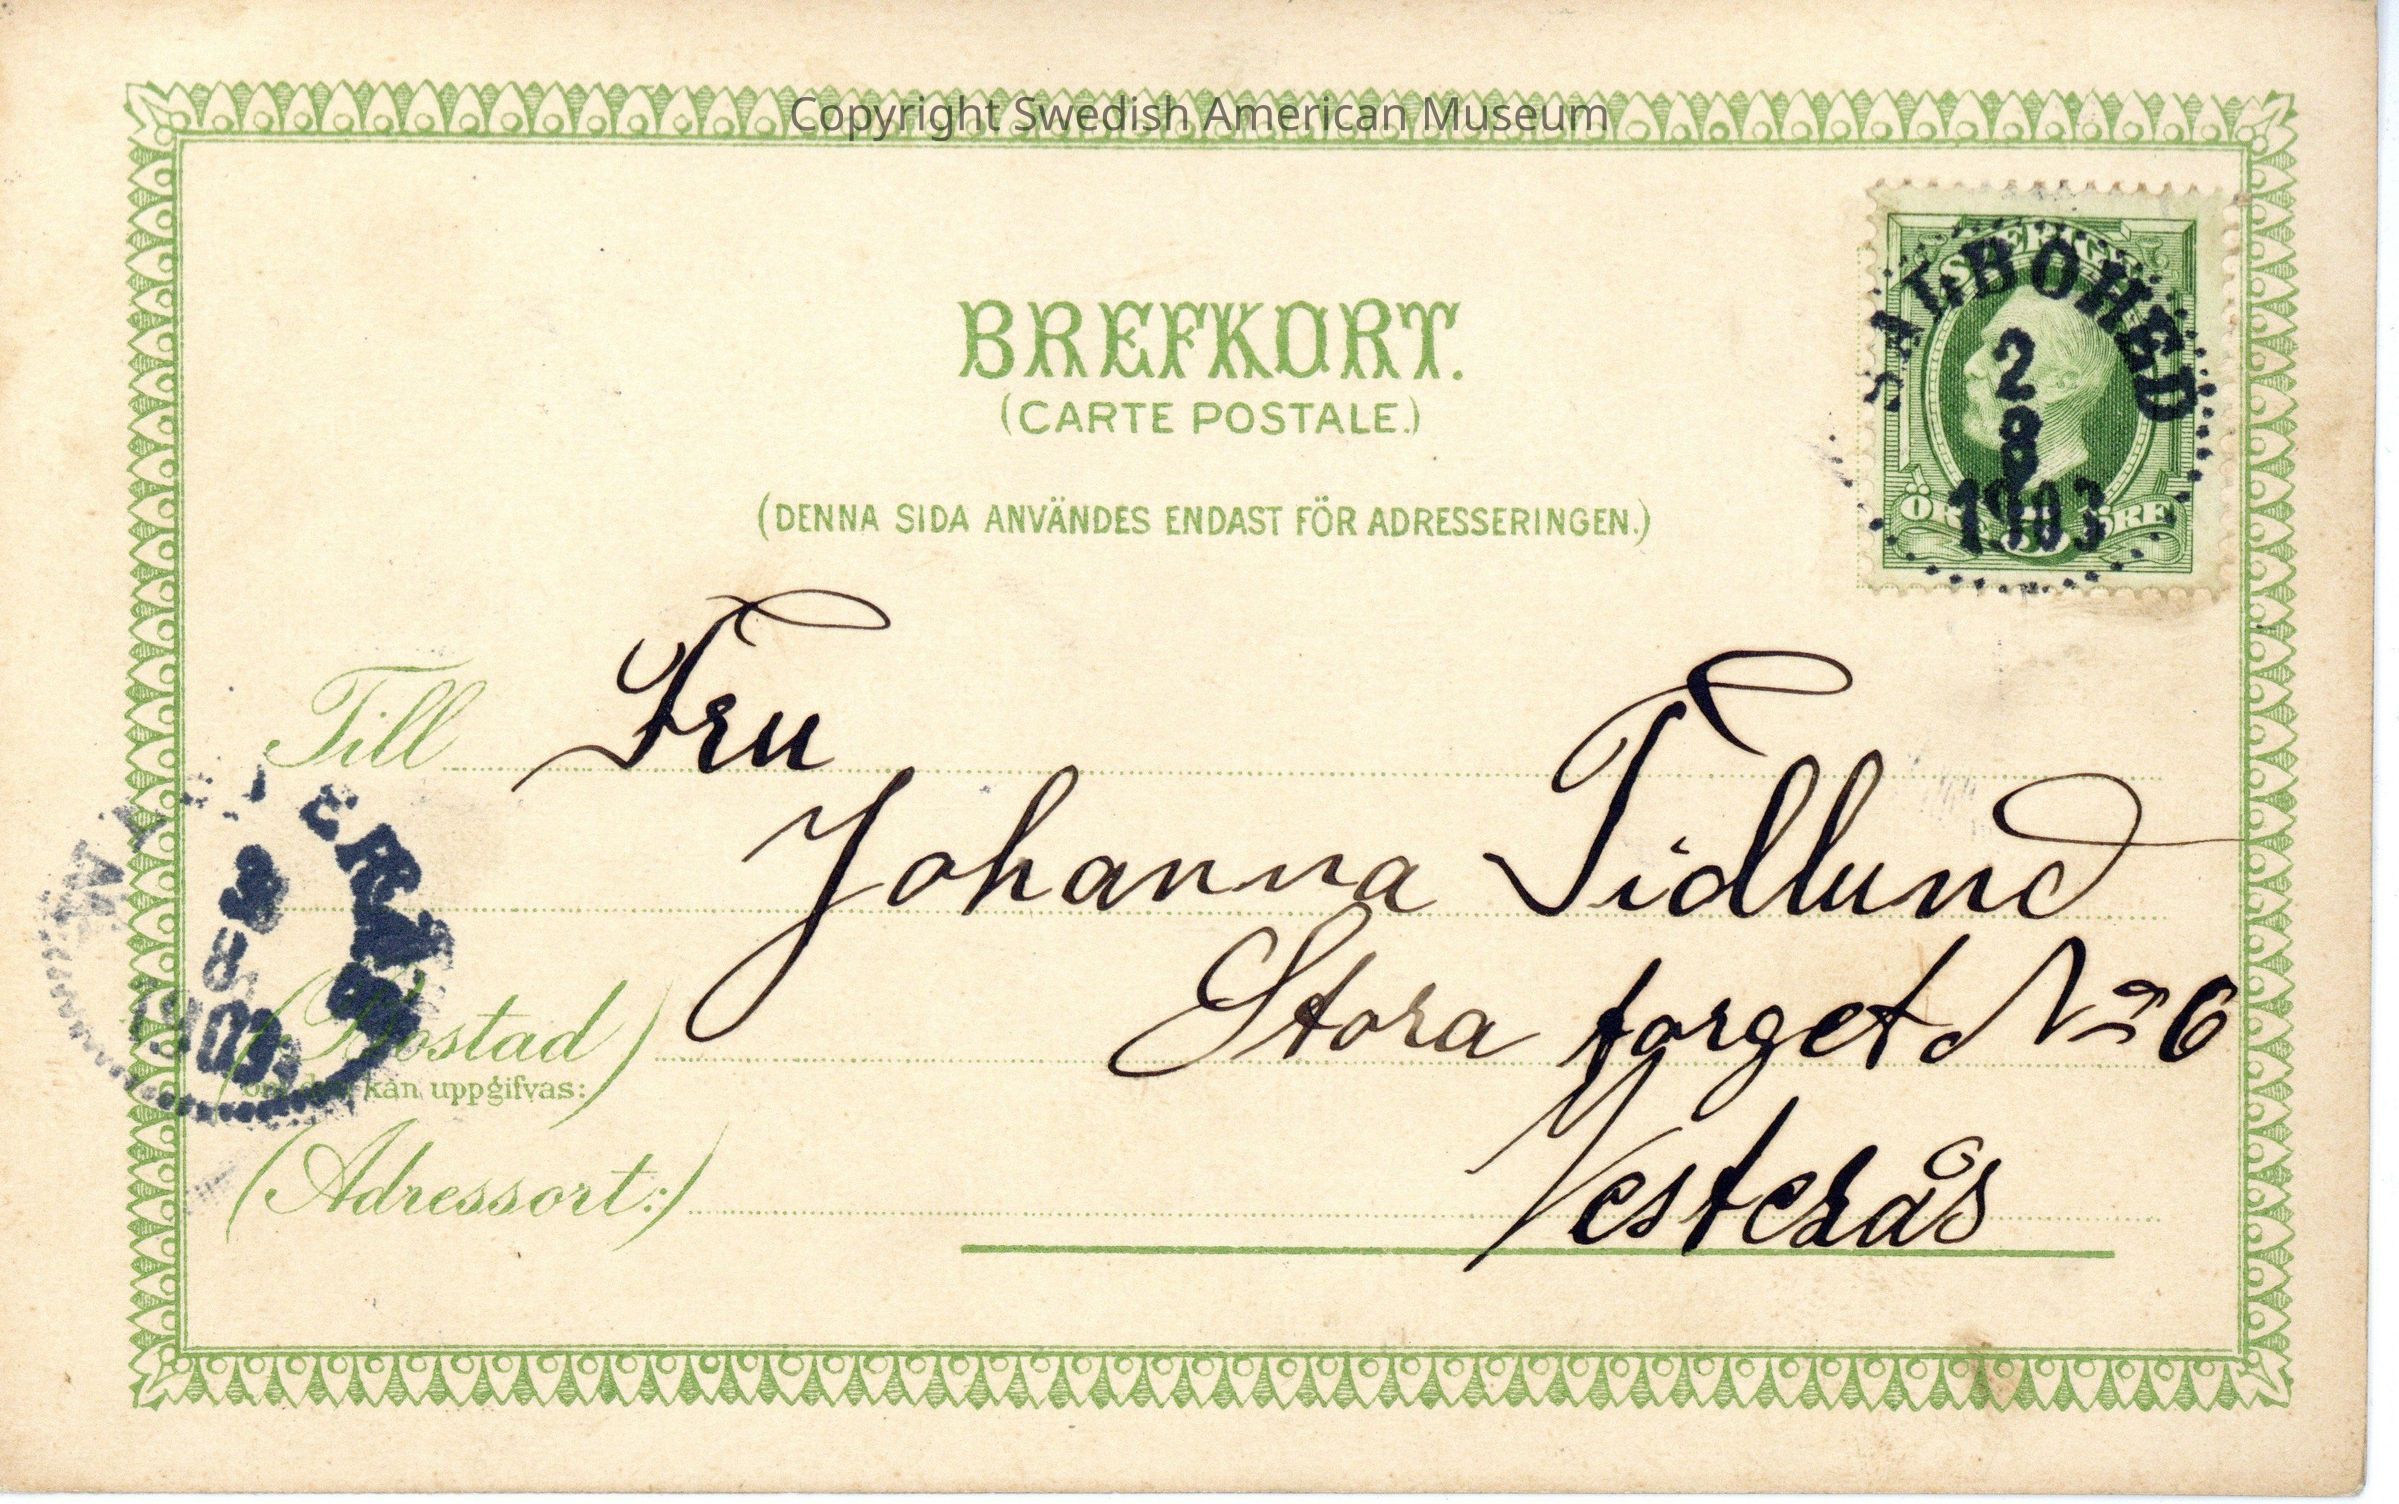 Copyright Swedish American Museum
SVERIGE
SALBOHED
2
8
1903
ÖRE 5 ÖRE
BREFKORT.
(CARTE POSTALE.)
(DENNA SIDA ANVÄNDES ENDAST FÖR ADRESSERINGEN.)
Till Fru
Johanna Tidlund
(Bostad) Stora torget No 6
om den kan uppgifvas:
(Adressort:) Vesterås
VESTERÅS
3
8